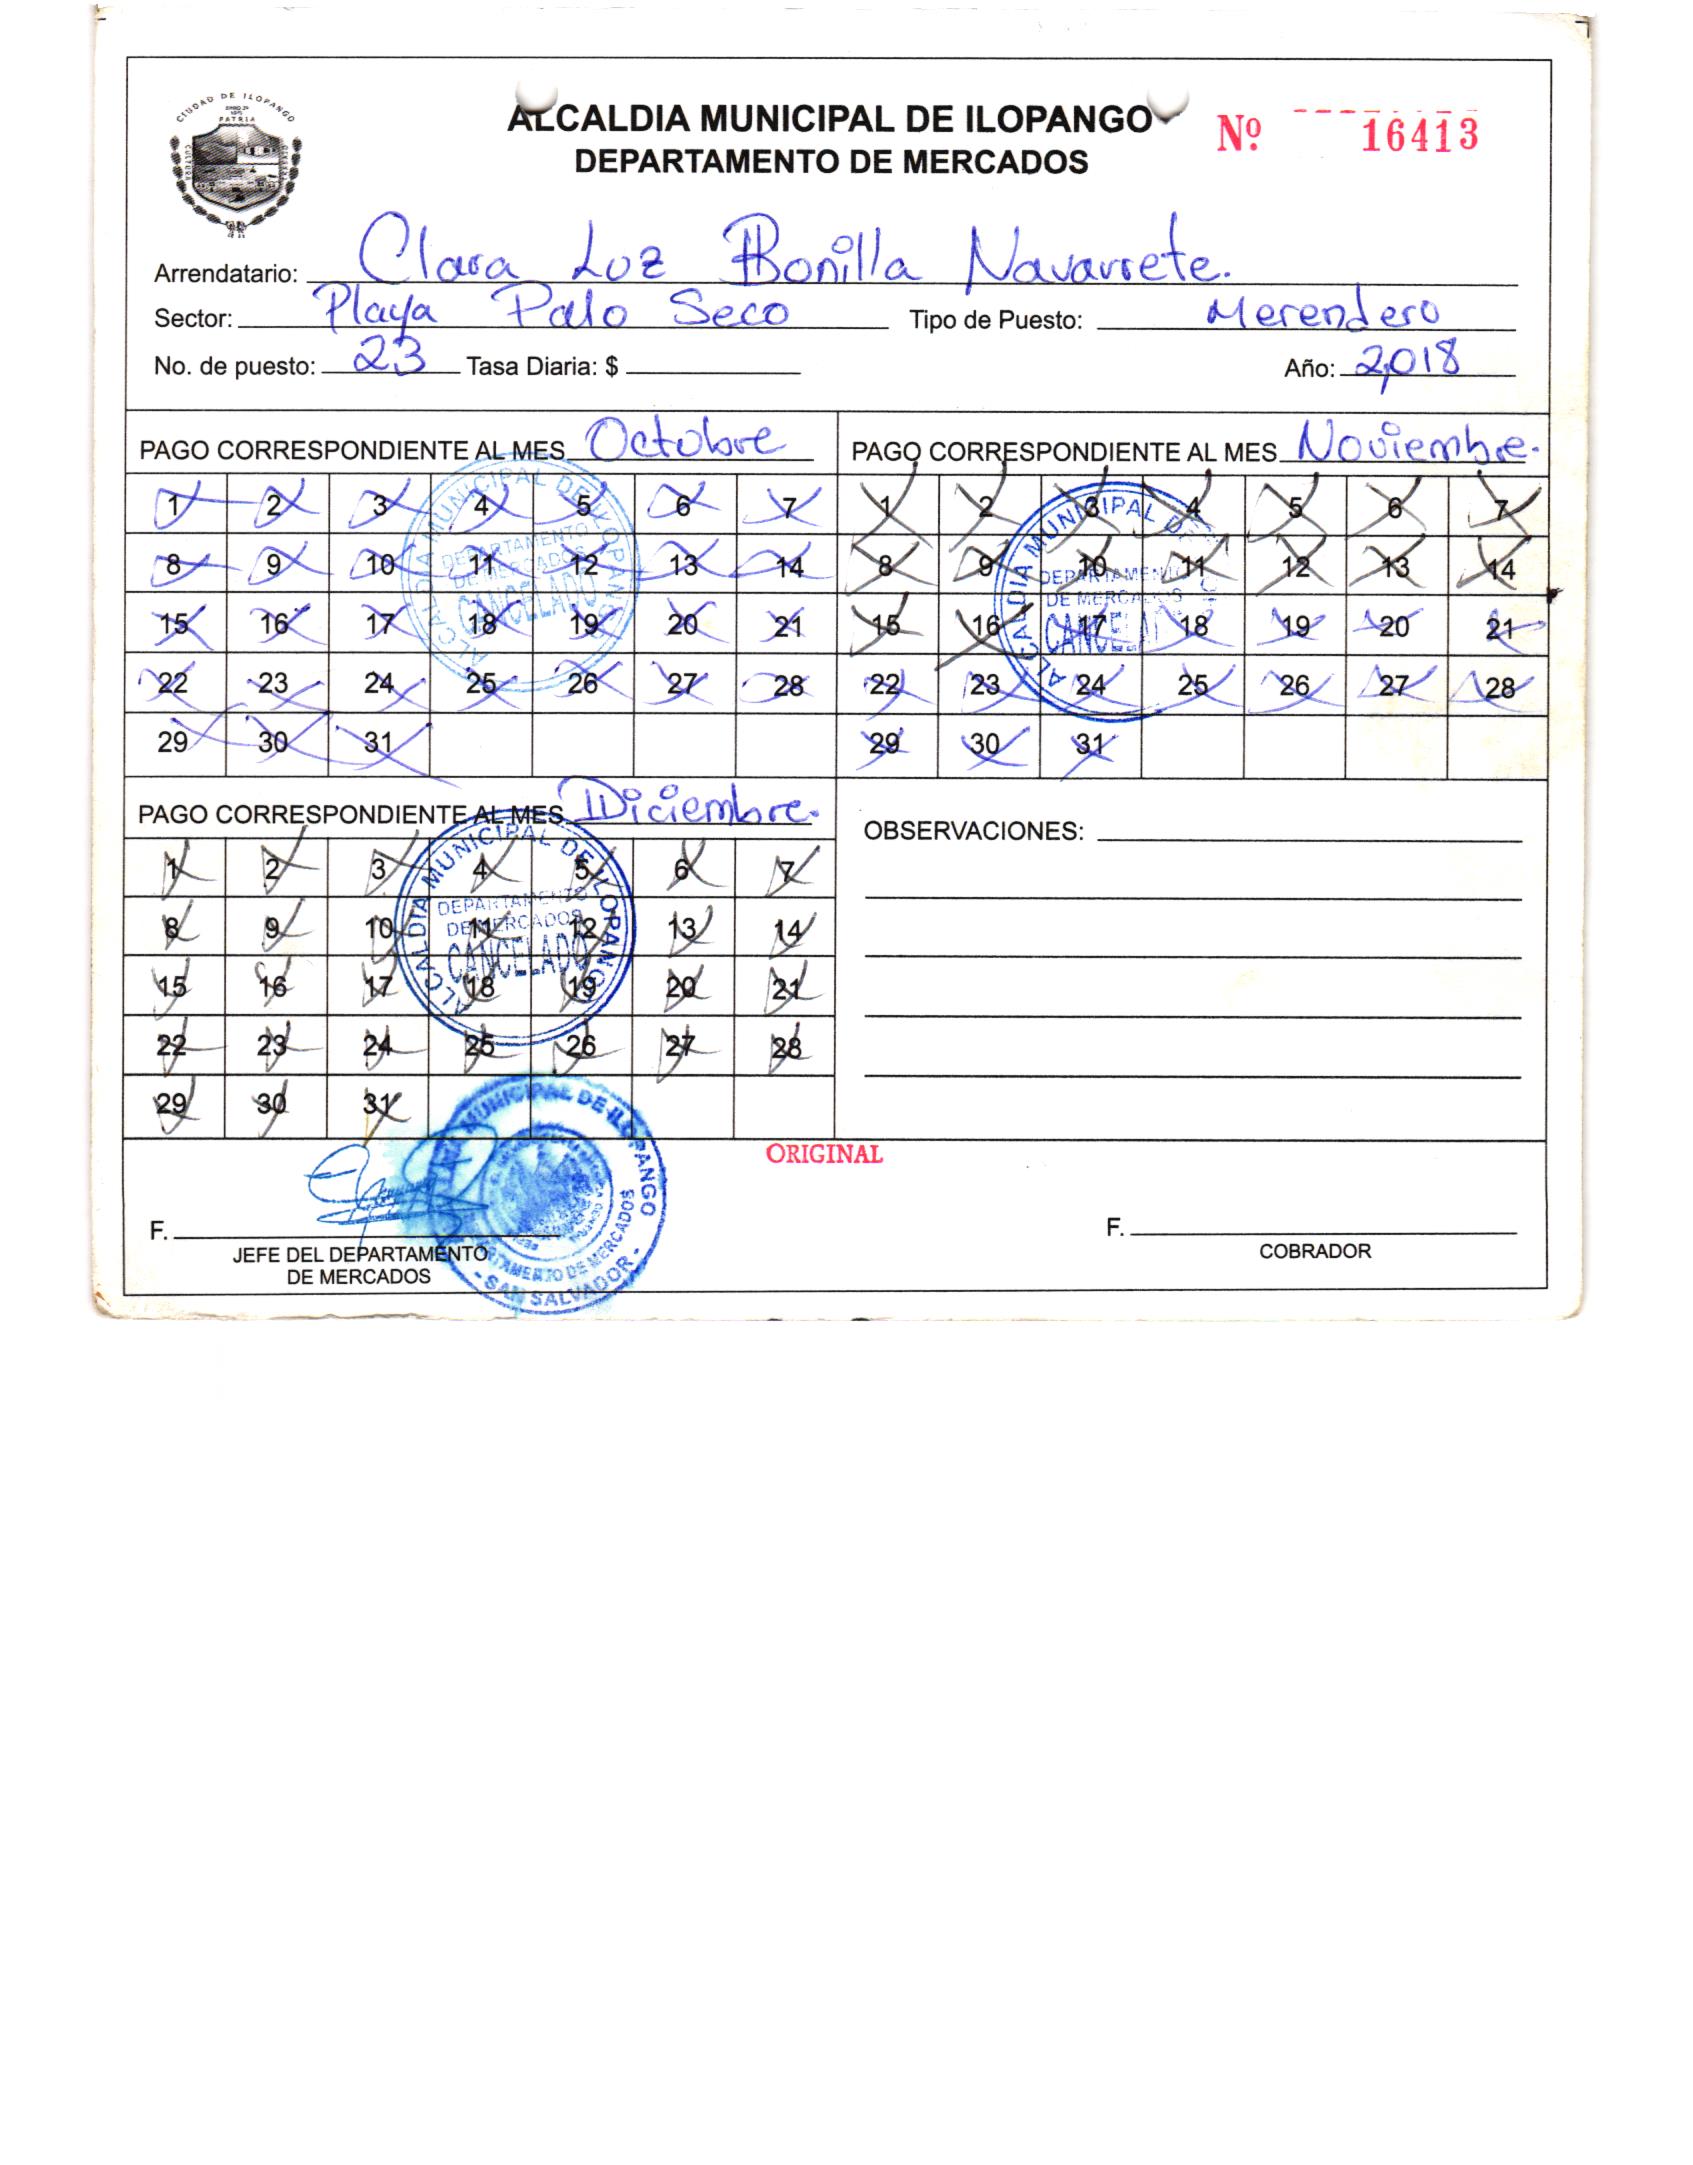 CIUDAD DE ILOPANGO
PATRIA
CULTURA
ALCALDIA MUNICIPAL DE ILOPANGO
DEPARTAMENTO DE MERCADOS
Nº 16413
Arrendatario: Clara Luz Bonilla Navarrete.
Sector: Playa Palo Seco Tipo de Puesto: Merendero
No. de puesto: 23 Tasa Diaria: $ Año: 2,018
PAGO CORRESPONDIENTE AL MES Octubre
1 2 3 4 5 6 7
8 9 10 11 12 13 14
15 16 17 18 19 20 21
22 23 24 25 26 27 28
29 30 31
ALCALDIA MUNICIPAL DE ILOPANGO
DEPARTAMENTO
DE MERCADOS
CANCELADO
PAGO CORRESPONDIENTE AL MES Noviembre.
1 2 3 4 5 6 7
8 9 10 11 12 13 14
15 16 17 18 19 20 21
22 23 24 25 26 27 28
29 30 31
ALCALDIA MUNICIPAL DE
DEPARTAMENTO
DE MERCADOS
PAGO CORRESPONDIENTE AL MES Diciembre.
1 2 3 4 5 6 7
8 9 10 11 12 13 14
15 16 17 18 19 20 21
22 23 24 25 26 27 28
29 30 31
ALCALDIA MUNICIPAL DE ILOPANGO
DEPARTAMENTO
DE MERCADOS
CANCELADO
OBSERVACIONES:
ORIGINAL
MUNICIPAL DE ILOPANGO
DE MERCADOS
- SAN SALVADOR -
F.
JEFE DEL DEPARTAMENTO
DE MERCADOS
F.
COBRADOR